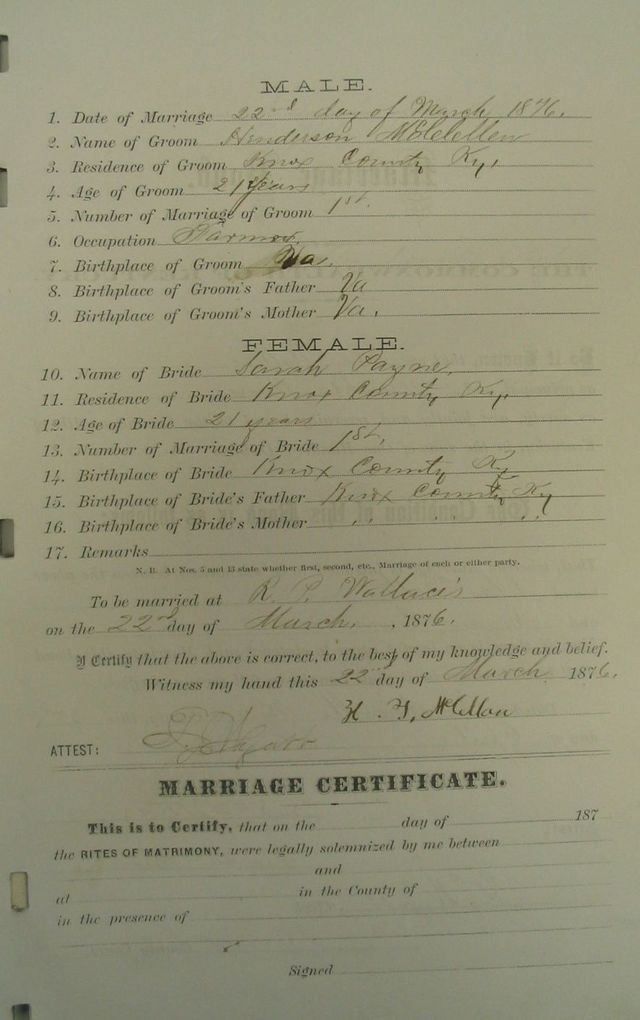 MALE.
1. Date of Marriage 22nd day of March 1876.
2. Name of Groom Henderson McClellen
3. Residence of Groom Knox County Ky,
4. Age of Groom 21 years
5. Number of Marriage of Groom 1st.
6. Occupation Farmer.
7. Birthplace of Groom Va.
8. Birthplace of Groom's Father Va
9. Birthplace of Groom's Mother Va.
FEMALE.
10. Name of Bride Sarah Payne.
11. Residence of Bride Knox County Ky,
12. Age of Bride 21 years
13. Number of Marriage of Bride 1st.
14. Birthplace of Bride Knox County Ky
15. Birthplace of Bride's Father Knox County Ky
16. Birthplace of Bride's Mother " " "
17. Remarks
N. B. At Nos. 5 and 13 state whether first, second, etc., Marriage of each or either party.
To be married at R. P. Wallace's
on the 22nd day of March, , 1876.
I Certify that the above is correct, to the best of my knowledge and belief.
Witness my hand this 22nd day of March 1876.
McClellan
ATTEST:
MARRIAGE CERTIFICATE.
This is to Certify, that on the day of 187
the RITES OF MATRIMONY, were legally solemnized by me between
and
at in the County of
in the presence of
Signed